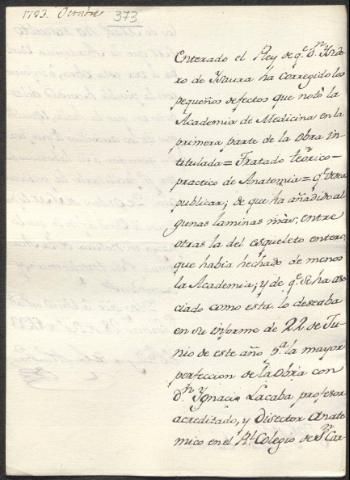 1793. Octubre 373
Enterado el Rey de q.e D.n Ysid-
ro de Ysaura ha corregido los
pequeños defectos que notó la
Academia de Medicina en la
primera parte de la obra in-
titulada = Tratado teorico-
practico de Anatomia = q.e desea
publicar; de que ha añadido al
gunas laminas mas, entre
otras la del esqueleto entero,
que habia hechado de menos
la Academia; y de q.e se ha aso
ciado como esta lo deseaba
en su informe de 22 de Ju-
nio de este año p.a la mayor
perfeccion de la Obra con
D.n Ygnacio Lacaba profesor
acreditado, y Director Anato
mico en el R.l Colegio de S.n Car-